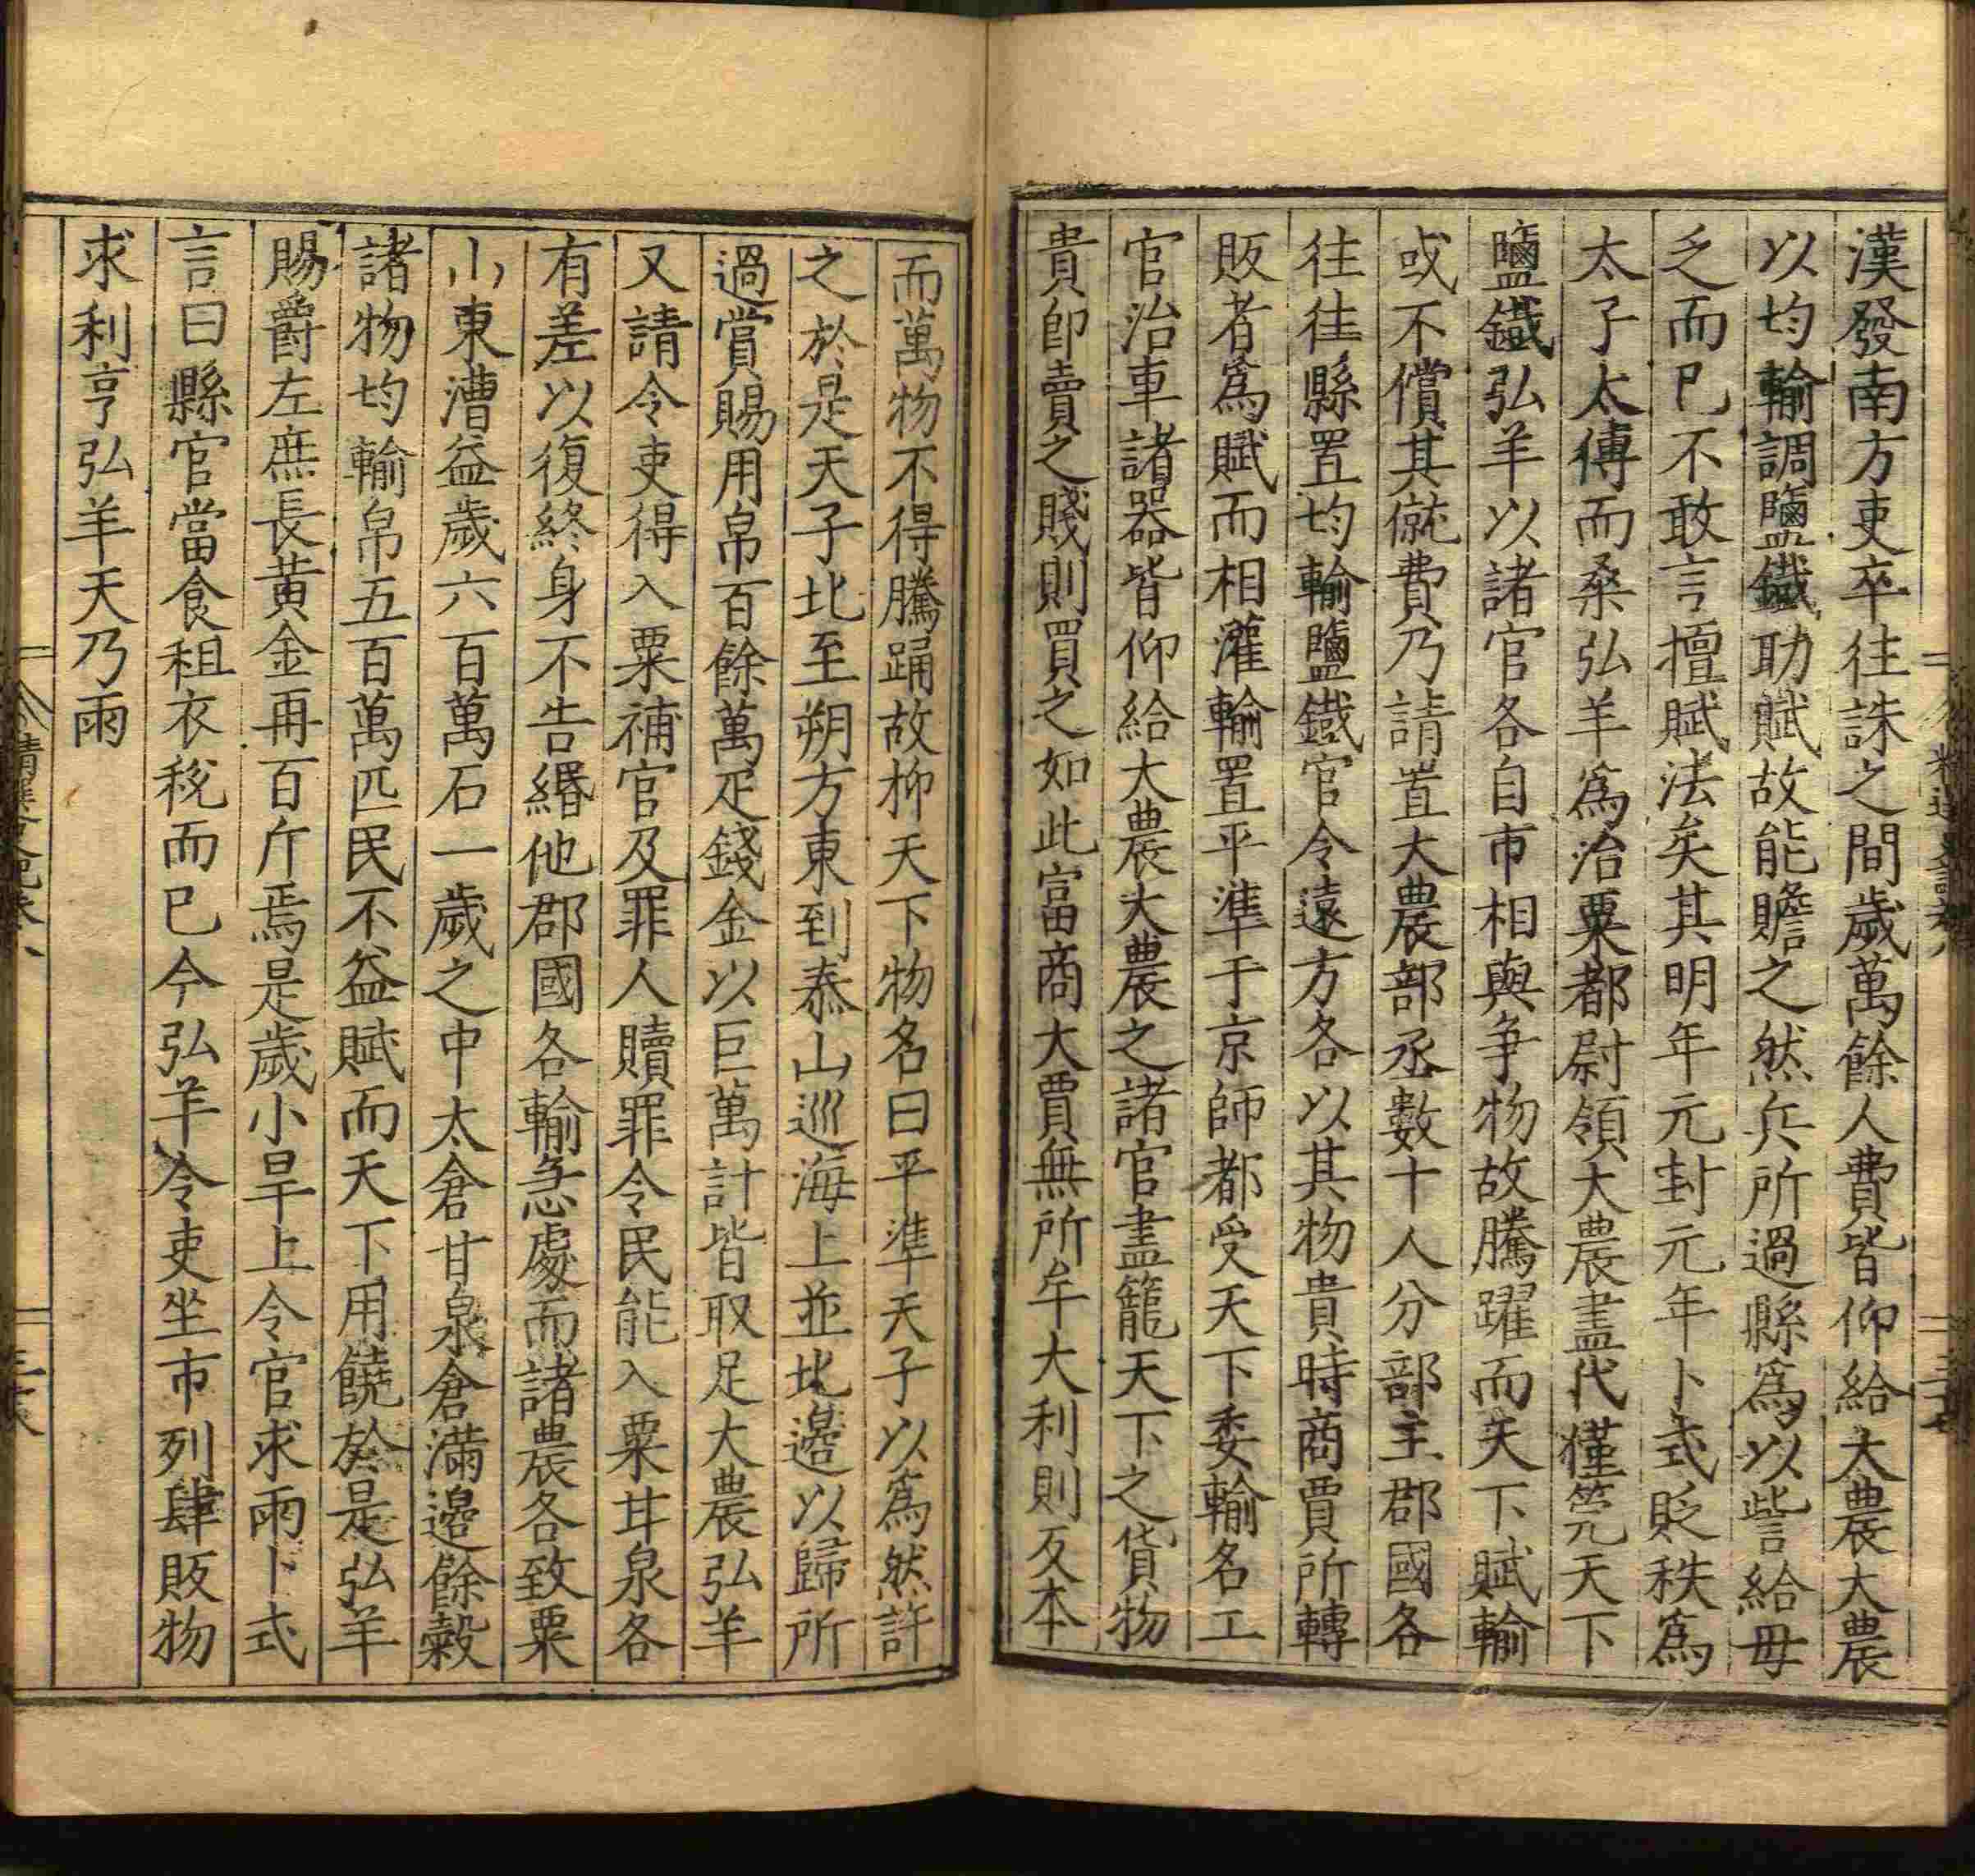 漢發南方吏卒往誅之間歲萬餘人費皆仰給大農大農
以均輸調鹽鐵助賦故能贍之然兵所過縣爲以訾給毋
乏而已不敢言擅賦法矣其明年元封元年卜式貶秩爲
太子太傅而桑弘羊爲治粟都尉領大農盡代僅筦天下
鹽鐵弘羊以諸官各自市相與争物故騰躍而天下賦輸
或不償其僦費乃請置大農部丞數十人分部主郡國各
往往縣置均輸鹽鐵官令遠方各以其物貴時商賈所轉
販者爲賦而相灌輸置平準于京師都受天下委輸名工
官治車諸器皆仰給大農大農之諸官盡籠天下之貨物
貴卽賣之賤則買之如此富商大賈無所牟大利則反本
而萬物不得騰踊故抑天下物名曰平準天子以爲然許
之於是天子北至朔方東到泰山巡海上並北邊以歸所
過賞賜用帛百餘萬疋錢金以巨萬計皆取足大農弘羊
又請令吏得入粟補官及罪人贖罪令民能入粟甘泉各
有差以復終身不告緡他郡國各輸急處而諸農各致粟
山東漕益歲六百萬石一歲之中太倉甘泉倉滿邊餘穀
諸物均輸帛五百萬匹民不益賦而天下用饒於是弘羊
賜爵左庶長黃金再百斤焉是歲小旱上令官求雨卜式
言曰縣官當食租衣稅而已今弘羊令吏坐市列肆販物
求利亨弘羊天乃雨